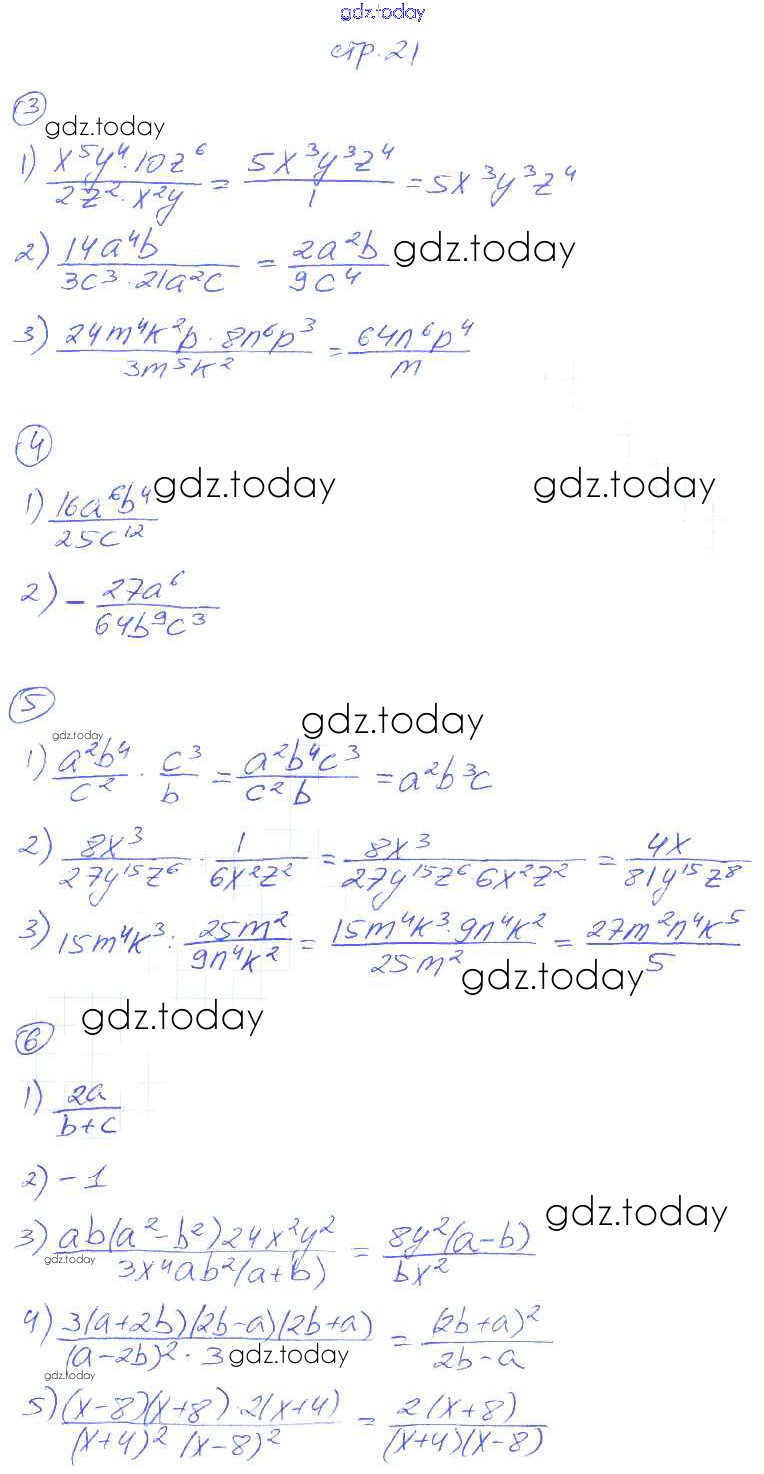 gdz.today
стр. 21
③
gdz.today
1) \frac{x^5y^4 \cdot 10z^6}{2z^2 \cdot x^2y} = \frac{5x^3y^3z^4}{1} = 5x^3y^3z^4
2) \frac{14a^4b}{3c^3 \cdot 21a^2c} = \frac{2a^2b}{9c^4} gdz.today
3) \frac{24m^4k^2p \cdot 8n^6p^3}{3m^5k^2} = \frac{64n^6p^4}{m}
④
gdz.today gdz.today
1) \frac{16a^6b^4}{25c^{12}}
2) - \frac{27a^6}{64b^9c^3}
⑤
gdz.today
gdz.today
1) \frac{a^2b^4}{c^2} \cdot \frac{c^3}{b} = \frac{a^2b^4c^3}{c^2b} = a^2b^3c
2) \frac{8x^3}{27y^{15}z^6} \cdot \frac{1}{6x^2z^2} = \frac{8x^3}{27y^{15}z^6 \cdot 6x^2z^2} = \frac{4x}{81y^{15}z^8}
3) 15m^4k^3 : \frac{25m^2}{9n^4k^2} = \frac{15m^4k^3 \cdot 9n^4k^2}{25m^2} = \frac{27m^2n^4k^5}{5}
gdz.today
gdz.today
⑥
1) \frac{2a}{b+c}
2) -1
gdz.today
3) \frac{ab(a^2-b^2)24x^2y^2}{3x^4ab^2(a+b)} = \frac{8y^2(a-b)}{bx^2}
gdz.today
4) \frac{3(a+2b)(2b-a)(2b+a)}{(a-2b)^2 \cdot 3} = \frac{(2b+a)^2}{2b-a}
gdz.today
gdz.today
5) \frac{(x-8)(x+8) \cdot 2(x+4)}{(x+4)^2 (x-8)^2} = \frac{2(x+8)}{(x+4)(x-8)}